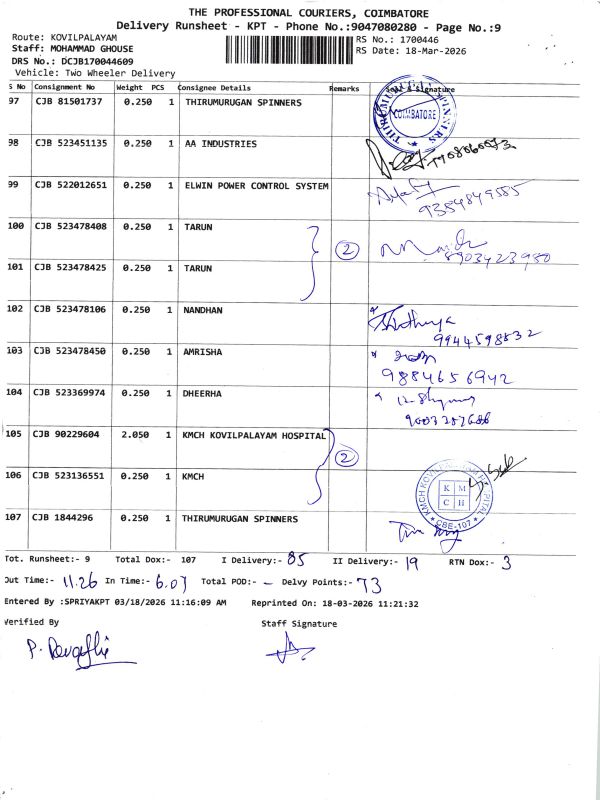 THE PROFESSIONAL COURIERS, COIMBATORE
Delivery Runsheet - KPT - Phone No.:9047080280 - Page No.:9
Route: KOVILPALAYAM
RS No.: 1700446
Staff: MOHAMMAD GHOUSE
RS Date: 18-Mar-2026
DRS No.: DCJB170044609
Vehicle: Two Wheeler Delivery
S No Consignment No Weight PCS Consignee Details Remarks Seal & Signature
97 CJB 81501737 0.250 1 THIRUMURUGAN SPINNERS COIMBATORE
98 CJB 523451135 0.250 1 AA INDUSTRIES
99 CJB 522012651 0.250 1 ELWIN POWER CONTROL SYSTEM
9354849585
100 CJB 523478408 0.250 1 TARUN 2
8903423980
101 CJB 523478425 0.250 1 TARUN
102 CJB 523478106 0.250 1 NANDHAN
9944598832
103 CJB 523478450 0.250 1 AMRISHA
9884656942
104 CJB 523369974 0.250 1 DHEERHA
105 CJB 90229604 2.050 1 KMCH KOVILPALAYAM HOSPITAL 2
106 CJB 523136551 0.250 1 KMCH
KMCH KOVILPALAYAM HOSPITAL
K M
C H
CBE-107
107 CJB 1844296 0.250 1 THIRUMURUGAN SPINNERS
Tot. Runsheet:- 9 Total Dox:- 107 I Delivery:- 85 II Delivery:- 19 RTN Dox:- 3
Out Time:- 11.26 In Time:- 6.07 Total POD:- - Delvy Points:- 73
Entered By :SPRIYAKPT 03/18/2026 11:16:09 AM Reprinted On: 18-03-2026 11:21:32
Verified By Staff Signature